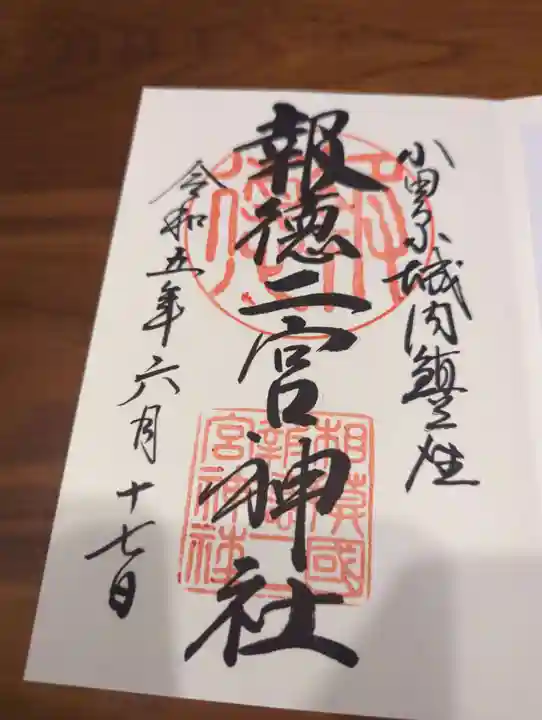 小田原城内鎮座
報徳二宮神社
令和五年六月十七日
相模國
報徳二
宮神社